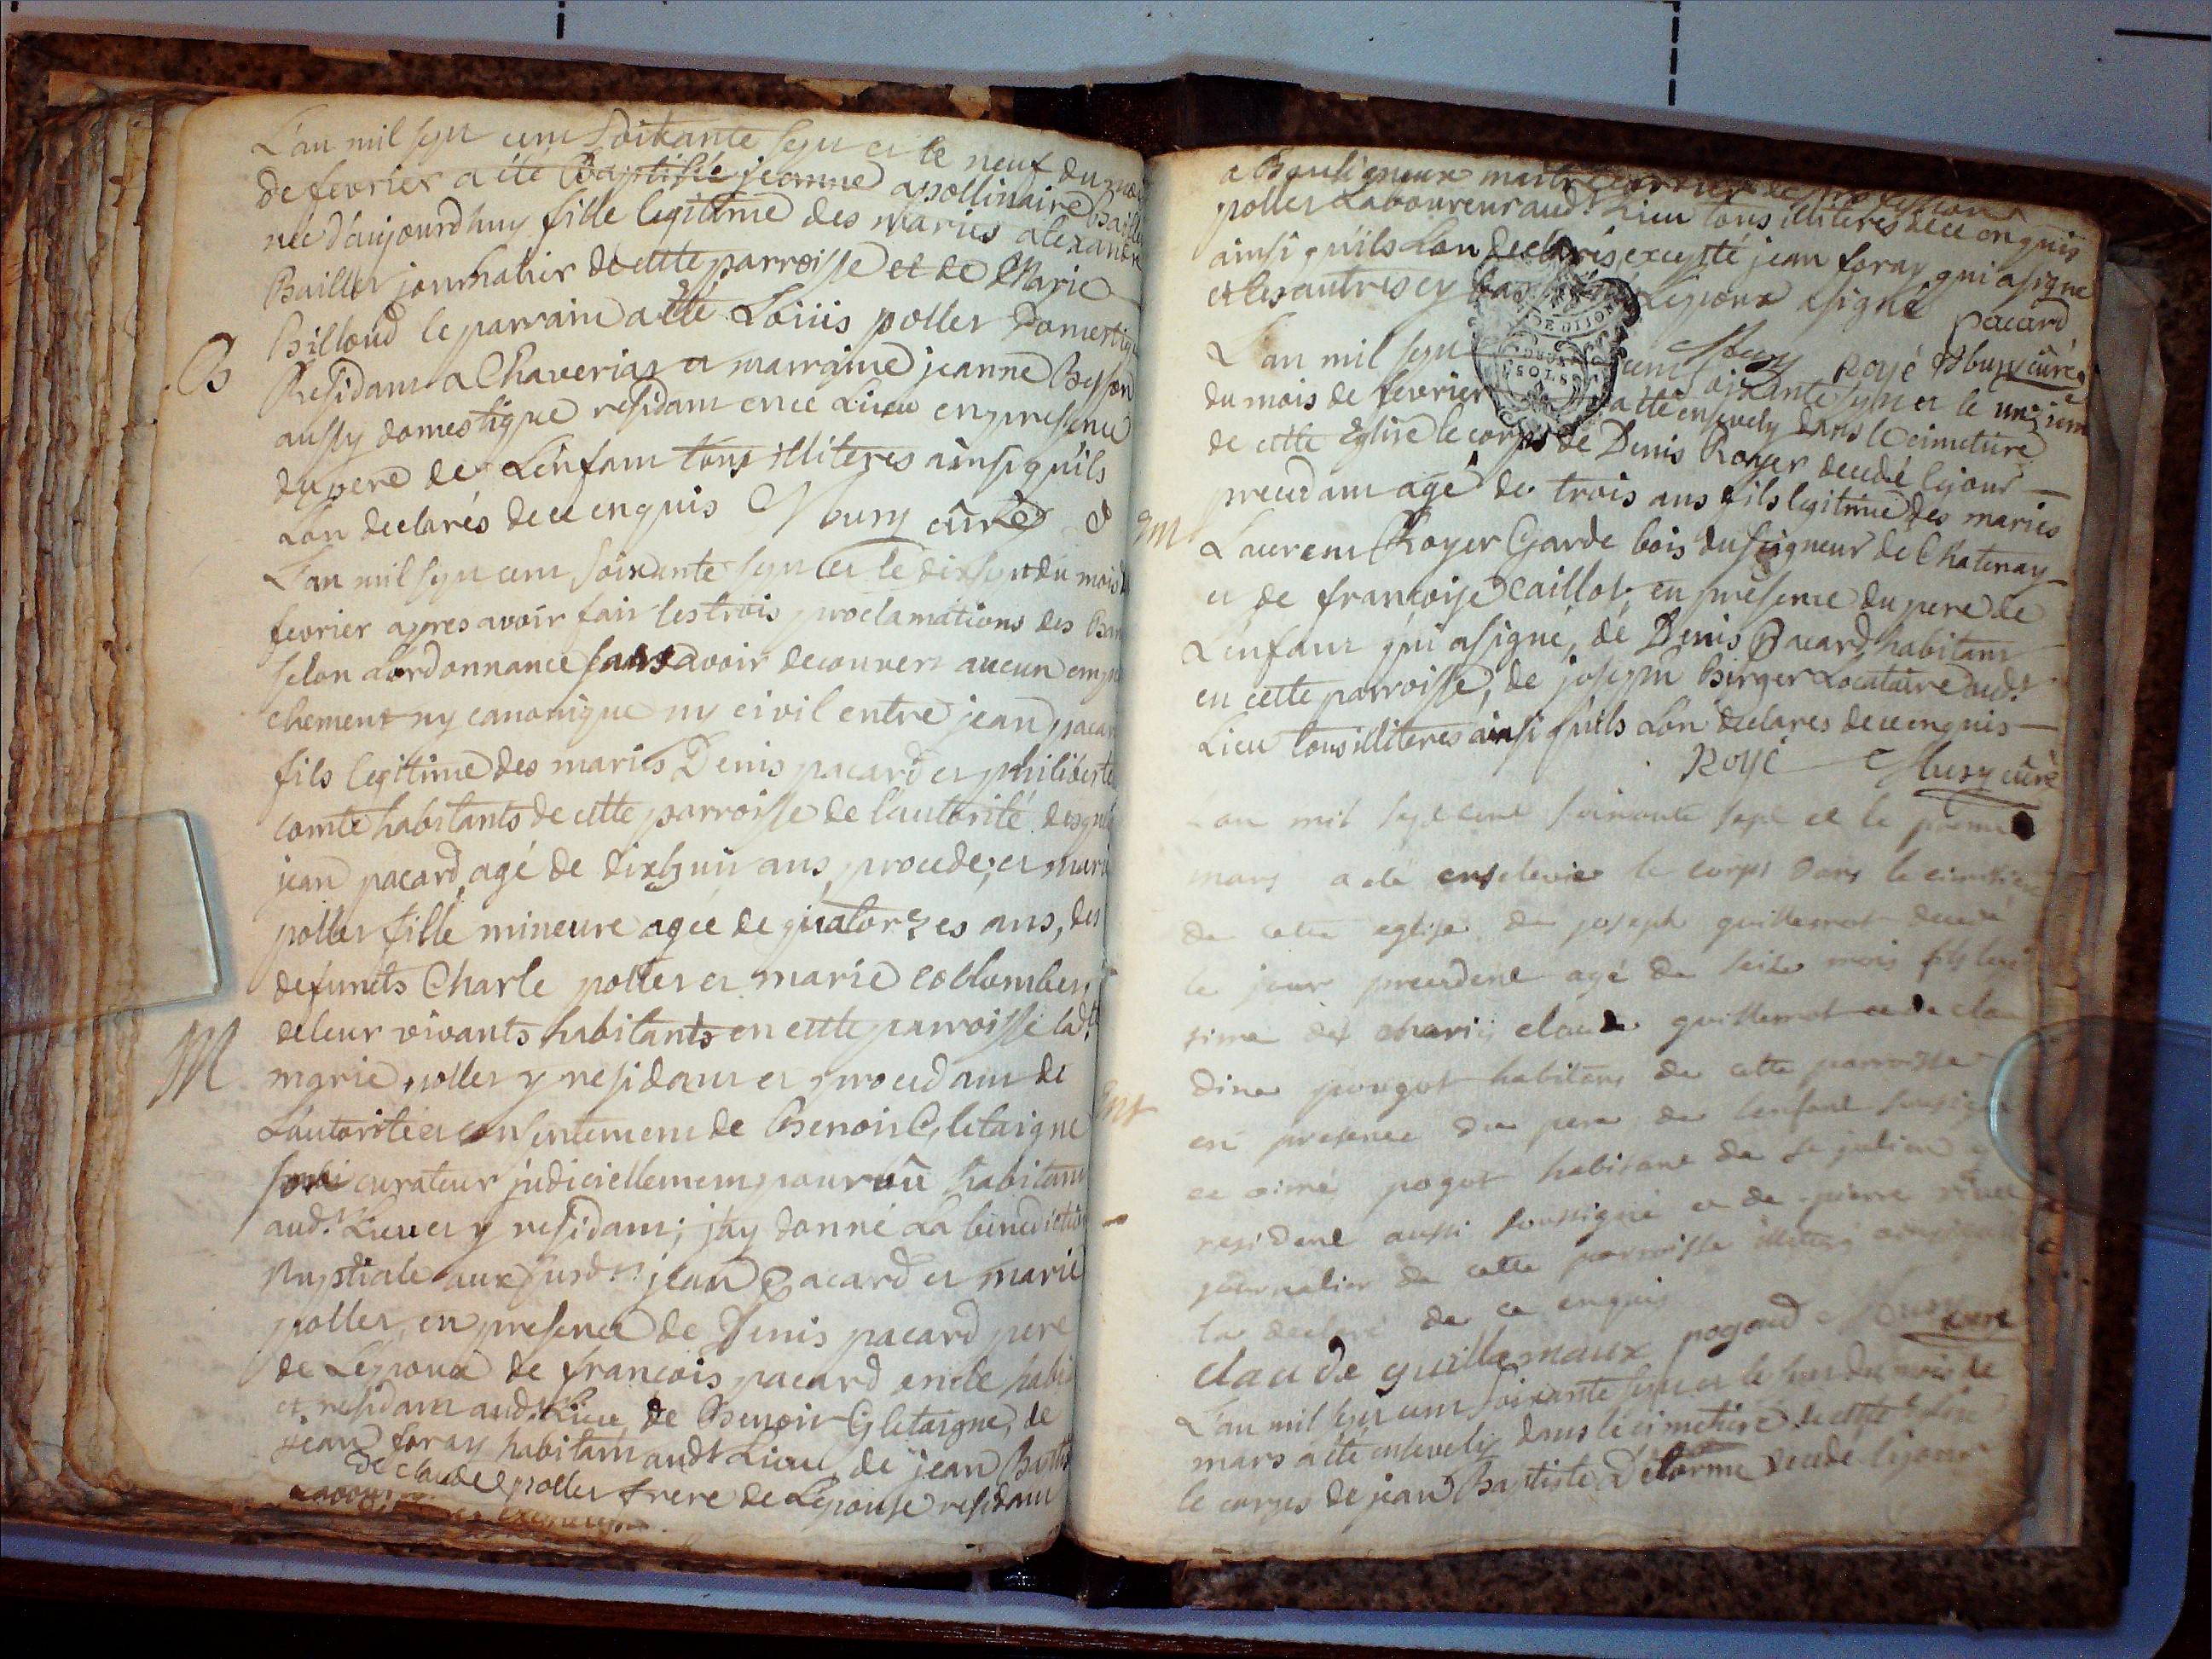 L'an mil sept cent soixante sept et le neuf du mois
de fevrier a été Baptisée jeanne apollinaire Baillet
née d'aujourdhuy fille legitime des maries alexandre
Baillet journalier de cette parroisse et de Marie
Billoud le parrain a été Loüis pollet domestique
B Residant a Chaverias et marraine jeanne Besson
aussy domestique residant en ce Lieu en presence
du pere de L'enfant tous illiteres ainsi qu'ils
L'on declarés de ce enquis Mury curé
L'an mil sept cent soixante sept et le dixsept du mois de
fevrier apres avoir fait les trois proclamations des Bans
selon L'ordonnance sans avoir decouvert aucun empe
chement ny canonique ny civil entre jean pacard
fils legitime des maries Denis pacard et philiberte
comte habitants de cette parroisse de l'autorité desquels
jean pacard agé de dixhuit ans procede; et marie
pollet fille mineure agée de quatorzes ans, des
defuncts Charle pollet et marie collombet,
de leur vivants habitants en cette parroisse lad.te
M marie pollet y residant et procedant de
L'autorité et consentement de Benoit Gletaigne
curateur judiciellement pourvû habitant
aud.t Lieu et y residant; j'ay donné La benediction
Nuptiale aux susd.ts jean Pacard et marie
pollet, en presence de Denis pacard pere
de L'epoux de francois pacard oncle habi
et residant aud.t Lieu de Benoit Gletaigne, de
jean foray habitant aud.t Lieu, de jean Baptiste
de claude pollet frere de L'epouse residant
a Bouligneux maitre de profession
pollet Laboureur aud.t Lieu tous illiteres de ce enquis
ainsi qu'ils L'on declarés excepté jean foray qui a signé
et les autres cy L'epoux a signé
pacard
foray Royé Mury curé
L'an mil sept cent soixante sept et le unzieme
du mois de fevrier a été ensevely dans le cimetiere
de cette Eglise le corps de Denis Royer decedé le jour
precedant agé de trois ans fils legitime des maries
M Laurent Royer Garde bois du seigneur de Chatenay
et de francoise Caillot, en presence du pere de
L'enfant qui a signé, de Denis Pacard habitant
en cette parroisse, de joseph Berger Locataire aud.t
Lieu tous illiteres ainsi quils L'on declares de ce enquis
Royé Mury curé
L'an mil sept cent soixante sept et le premier
mars a été ensevelie le corps dans le cimetiere
de cette eglise de joseph guillemot decedé
le jour precedent agé de seize mois fils legi
time des maries claude guillemot et de clau
dine pougot habitans de cette parroisse
Mt en presence du pere de l'enfant soussigné
et aimé pogot habitant de St julien
resident aussi soussigné et de pierre
journalier de cette parroisse illiteré ainsi quil
la declaré de ce enquis
claude guillemaux pogoud Mury curé
L'an mil sept cent soixante sept et le du mois de
mars a été ensevely dans le cimetiere de cette Eglise
le corps de jean Baptiste Delorme decedé le jour